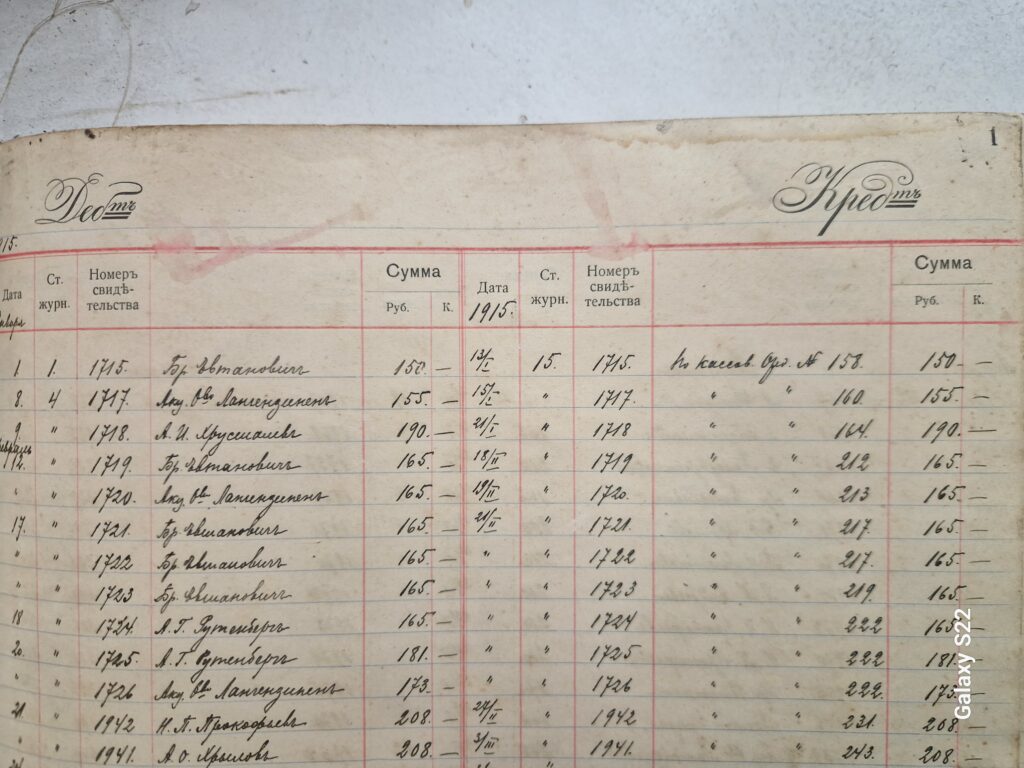 1
Дебтъ Кредтъ
915.
Дата Ст. журн. Номеръ свидѣ-тельства Сумма Руб. К. Дата 1915. Ст. журн. Номеръ свидѣ-тельства Сумма Руб. К.
1 1. 1715. Бр. Евтановичъ 150. — 13/I 15. 1715. По кассов. Орд. № 158. 150 —
8. 4 1717. Акц. Овο Лангензипенъ 155. — 15/I " 1717. " " 160. 155. —
9 " 1718. А. И. 190. — 21/I " 1718 " " 164. 190. —
12. " 1719. Бр. Евтановичъ 165. — 18/II " 1719 " " 212 165. —
" " 1720. Акц. Овο Лангензипенъ 165. — 19/II " 1720. " " 213 165. —
17. " 1721. Бр. Евтановичъ 165. — 21/II " 1721. " " 217. 165. —
" " 1722 Бр. Евтановичъ 165. — " " 1722 " " 217. 165. —
" " 1723 Бр. Евтановичъ 165. — " " 1723 " " 219. 165. —
18 " 1724. А. Г. Рутенбергъ 165. — " " 1724 " " 222 165 —
20. " 1725. А. Г. Рутенбергъ 181. — " " 1725 " " 222 181. —
" " 1726 Акц. Овο Лангензипенъ 173. — " " 1726 " " 222. 173. —
21. " 1942 Н. П. Прокофьевъ 208. — 27/II " 1942 " " 231. 208. —
" " 1941. А. О. Крыловъ 208. — 3/III " 1941. " " 243. 208. —
Galaxy S22